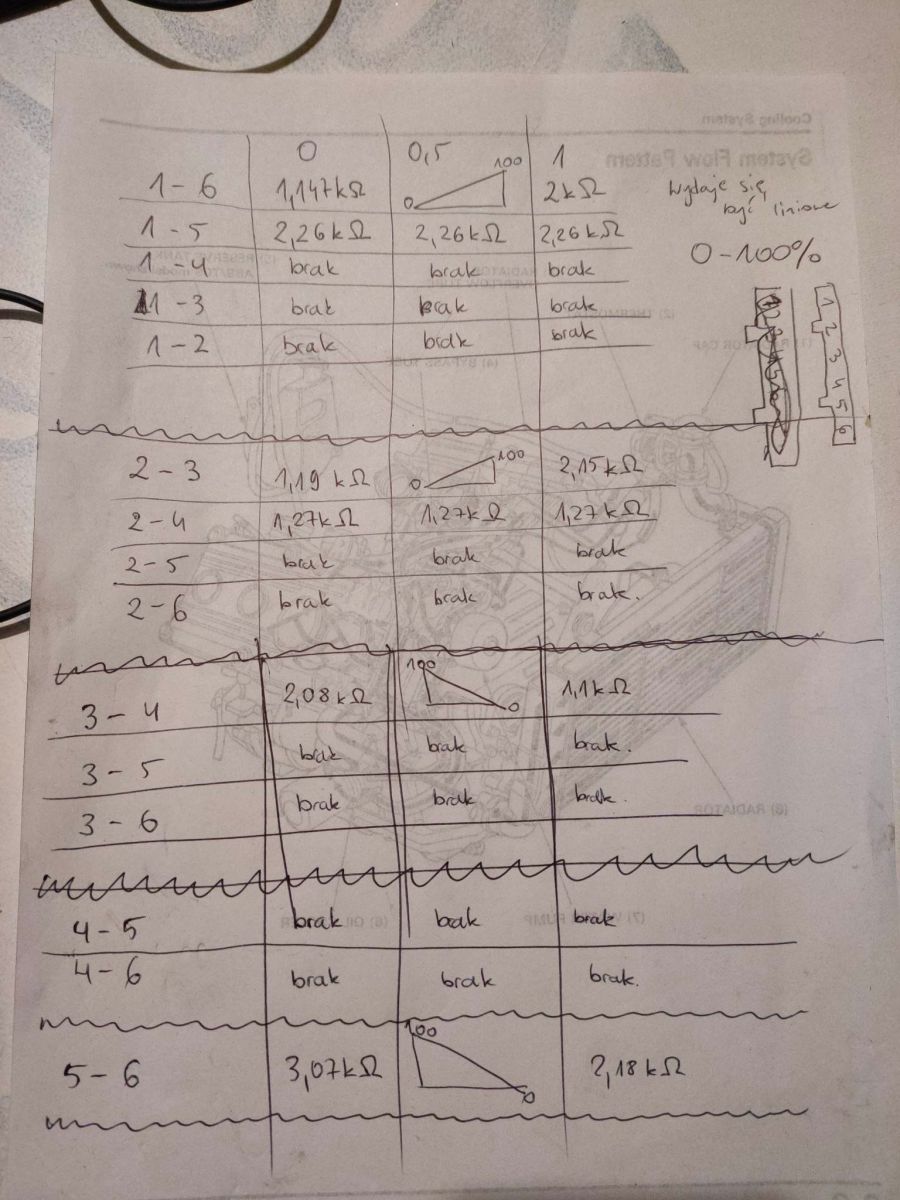 Cooling System
System Flow Pattern
0 0,5 1
1 - 6 1,147kΩ 0 100 2kΩ
Wydaje się
być liniowe
1 - 5 2,26kΩ 2,26kΩ 2,26kΩ
0 - 100%
1 - 4 brak brak brak
1 - 3 brak brak brak
1 - 2 brak brak brak
1 2 3 4 5 6
(4) BYPASS
2 - 3 1,19 kΩ 0 100 2,15kΩ
2 - 4 1,27kΩ 1,27kΩ 1,27kΩ
2 - 5 brak brak brak
2 - 6 brak brak brak.
3 - 4 2,08kΩ 100 0 1,1kΩ
3 - 5 brak brak brak.
3 - 6 brak brak brak.
(8) RADIATOR
4 - 5 brak brak brak
4 - 6 brak brak brak.
5 - 6 3,07kΩ 100 0 2,18kΩ